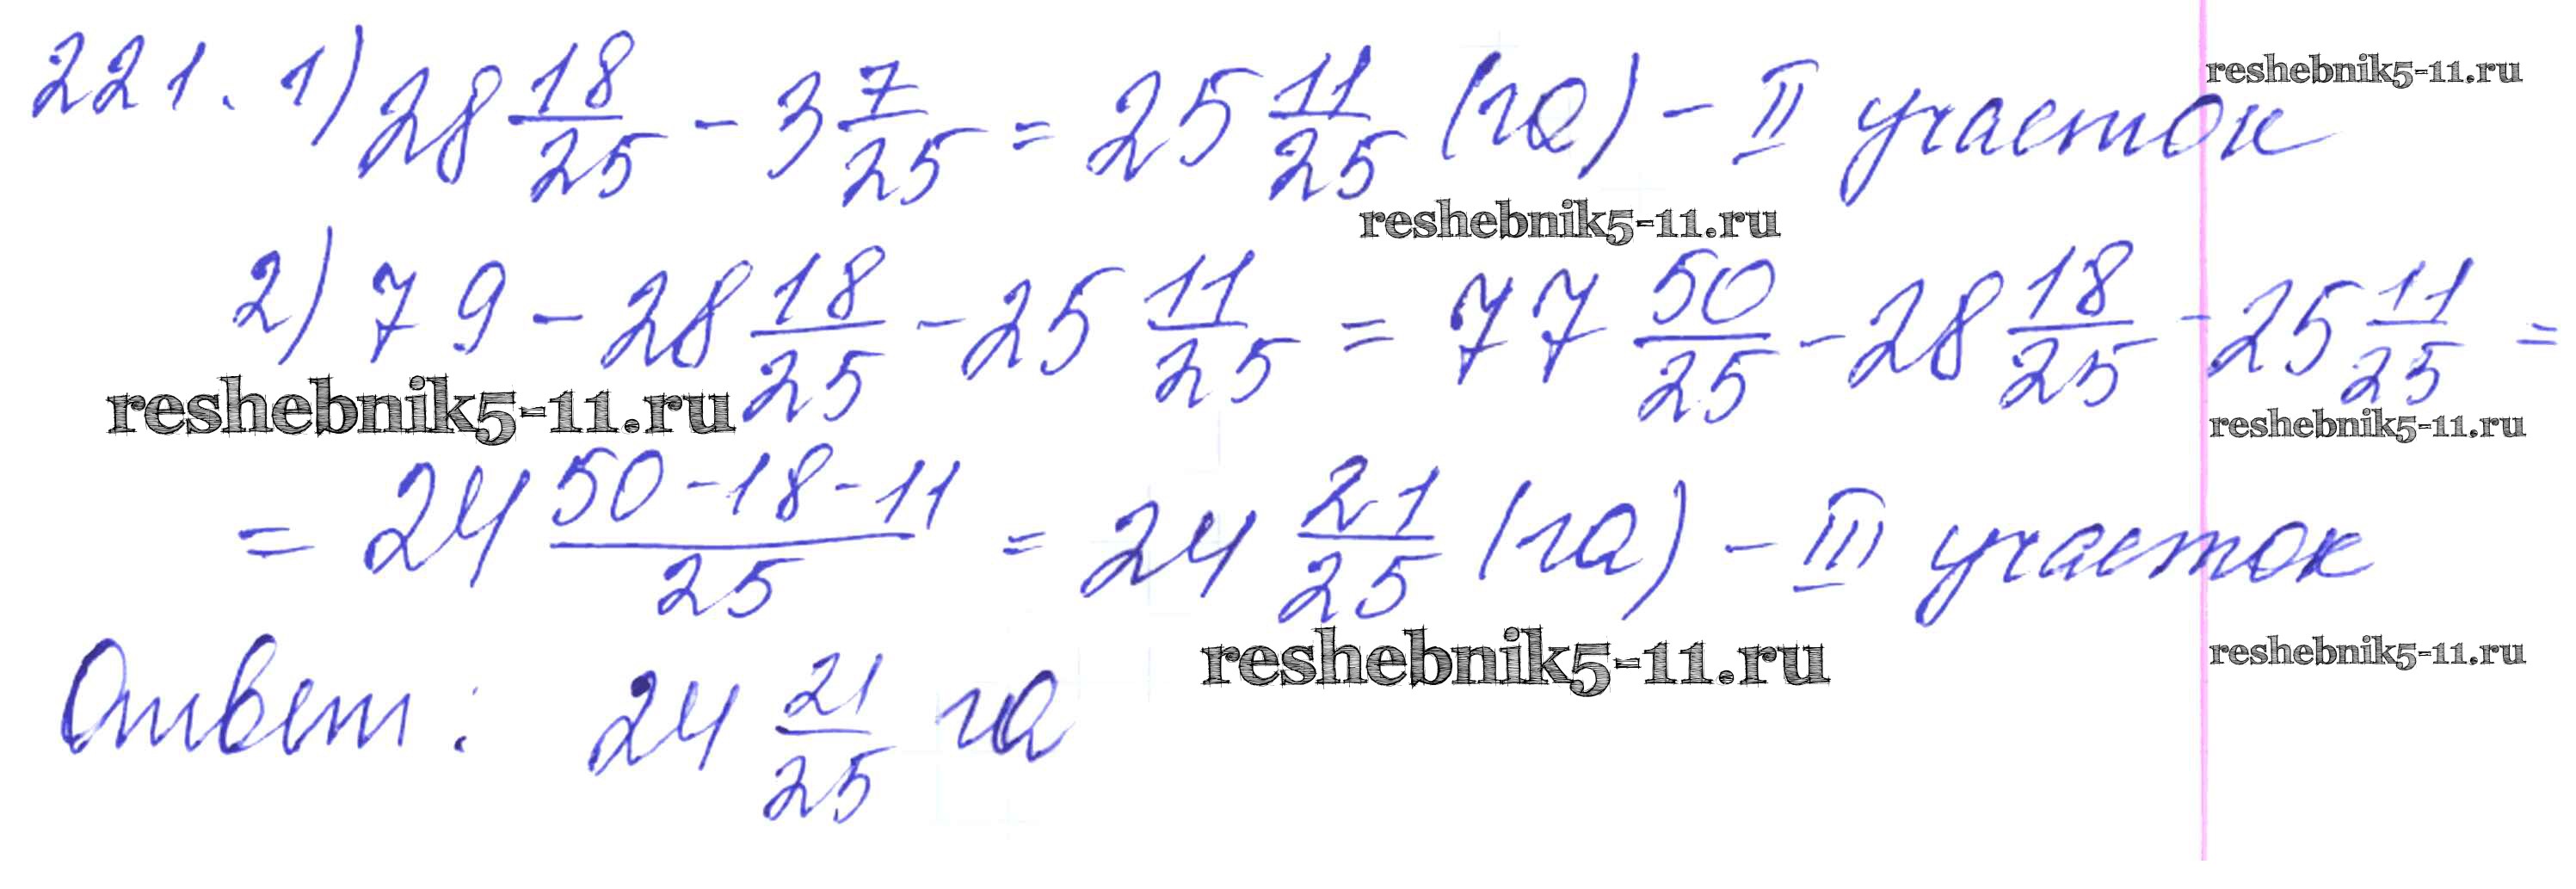 221. 1) 28 18/25 - 3 7/25 = 25 11/25 (га) - II участок
reshebnik5-11.ru
reshebnik5-11.ru
2) 79 - 28 18/25 - 25 11/25 = 77 50/25 - 28 18/25 - 25 11/25 =
reshebnik5-11.ru
reshebnik5-11.ru
= 24 50-18-11/25 = 24 21/25 (га) - III участок
reshebnik5-11.ru
reshebnik5-11.ru
Ответ: 24 21/25 га